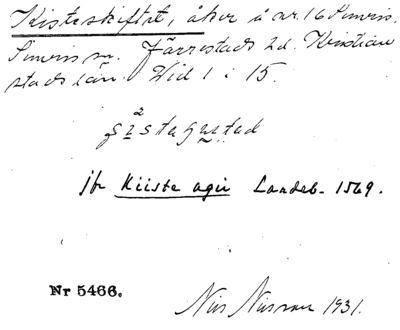 Kisteskiftet, åker å nr. 16 Simris.
Simris sn. Järrestads hd. Kristian
stads län. Vid 1 i 15.
jfr Kiiste agir Landeb. 1569.
Nr 5466.
Nils Nilsson 1931.